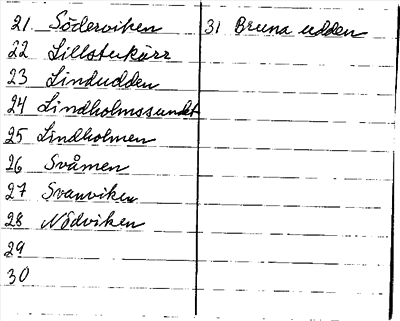 21 Söderviken
22 Lillstukärr
23 Lindudden
24 Lindholmssundet
25 Lindholmen
26 Svåmen
27 Svanviken
28 Nödviken
29
30
31 Bruna udden